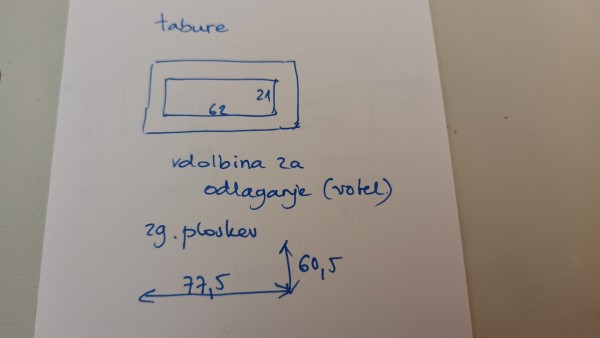 tabure
21
62
vdolbina za
odlaganje (votel)
zg. ploskev
60,5
77,5